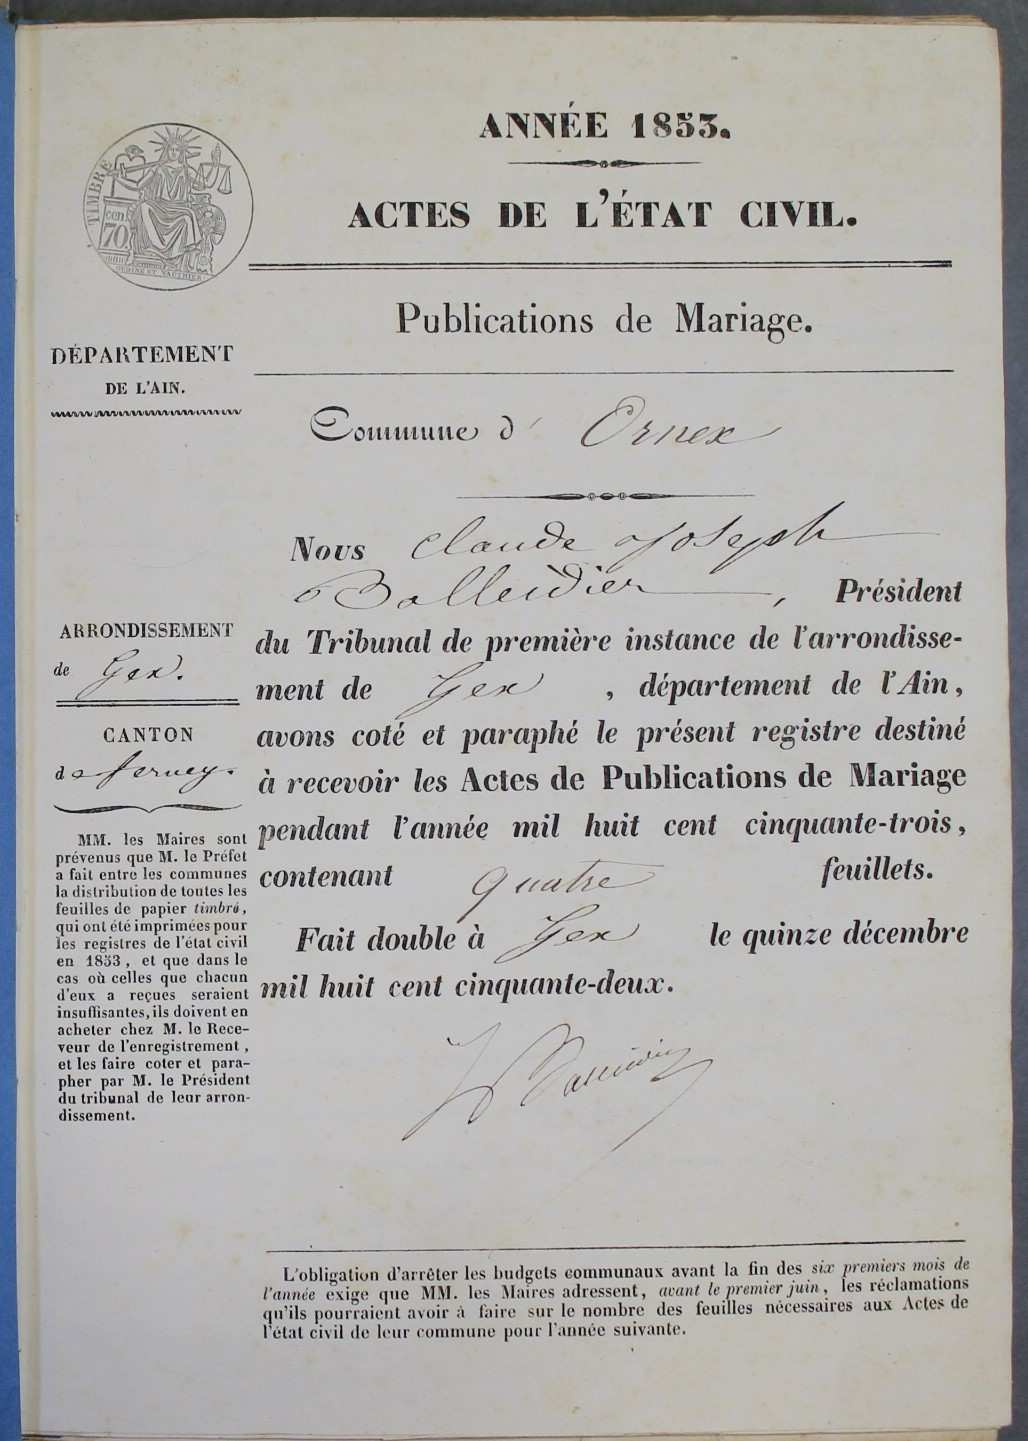 ANNÉE 1853.
ACTES DE L'ÉTAT CIVIL.
TIMBRE
cen
70
Publications de Mariage.
DÉPARTEMENT
DE L'AIN.
Commune d' Ornex
Nous Claude Joseph
Balleidier, Président
du Tribunal de première instance de l'arrondisse-
ment de Gex, département de l'Ain,
avons coté et paraphé le présent registre destiné
à recevoir les Actes de Publications de Mariage
pendant l'année mil huit cent cinquante-trois,
contenant quatre feuillets.
Fait double à Gex le quinze décembre
mil huit cent cinquante-deux.
Balleidier
ARRONDISSEMENT
de Gex.
CANTON
de ferney.
MM. les Maires sont
prévenus que M. le Préfet
a fait entre les communes
la distribution de toutes les
feuilles de papier timbré,
qui ont été imprimées pour
les registres de l'état civil
en 1853, et que dans le
cas où celles que chacun
d'eux a reçues seraient
insuffisantes, ils doivent en
acheter chez M. le Rece-
veur de l'enregistrement,
et les faire coter et para-
pher par M. le Président
du tribunal de leur arron-
dissement.
L'obligation d'arrêter les budgets communaux avant la fin des six premiers mois de
l'année exige que MM. les Maires adressent, avant le premier juin, les réclamations
qu'ils pourraient avoir à faire sur le nombre des feuilles nécessaires aux Actes de
l'état civil de leur commune pour l'année suivante.